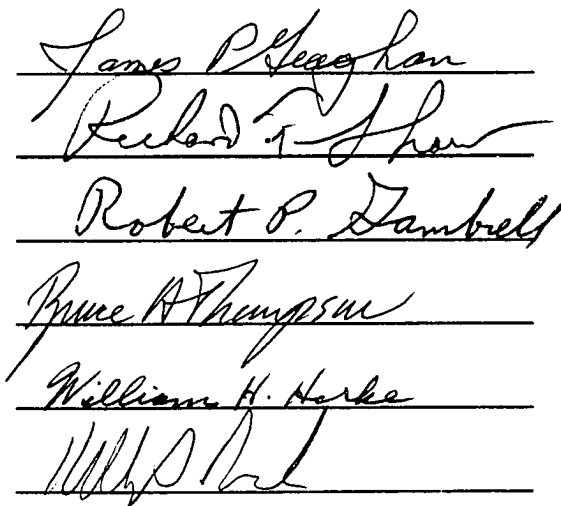 James P Geaghan
Richard F Shaw
Robert P. Gambrell
Bruce A Thompson
William H. Herke